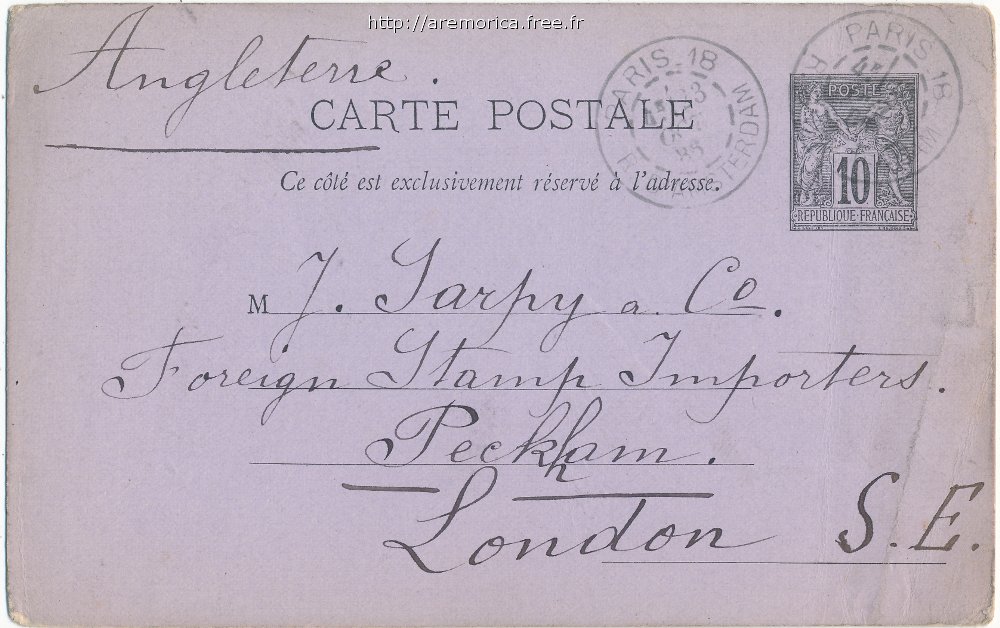 http://aremorica.free.fr
Angleterre.
CARTE POSTALE
Ce côté est exclusivement réservé à l'adresse.
PARIS 18
PARIS 18
POSTE
10
REPUBLIQUE FRANÇAISE
M J. Sarpy a Co.
Foreign Stamp Importers.
Peckham.
London S.E.